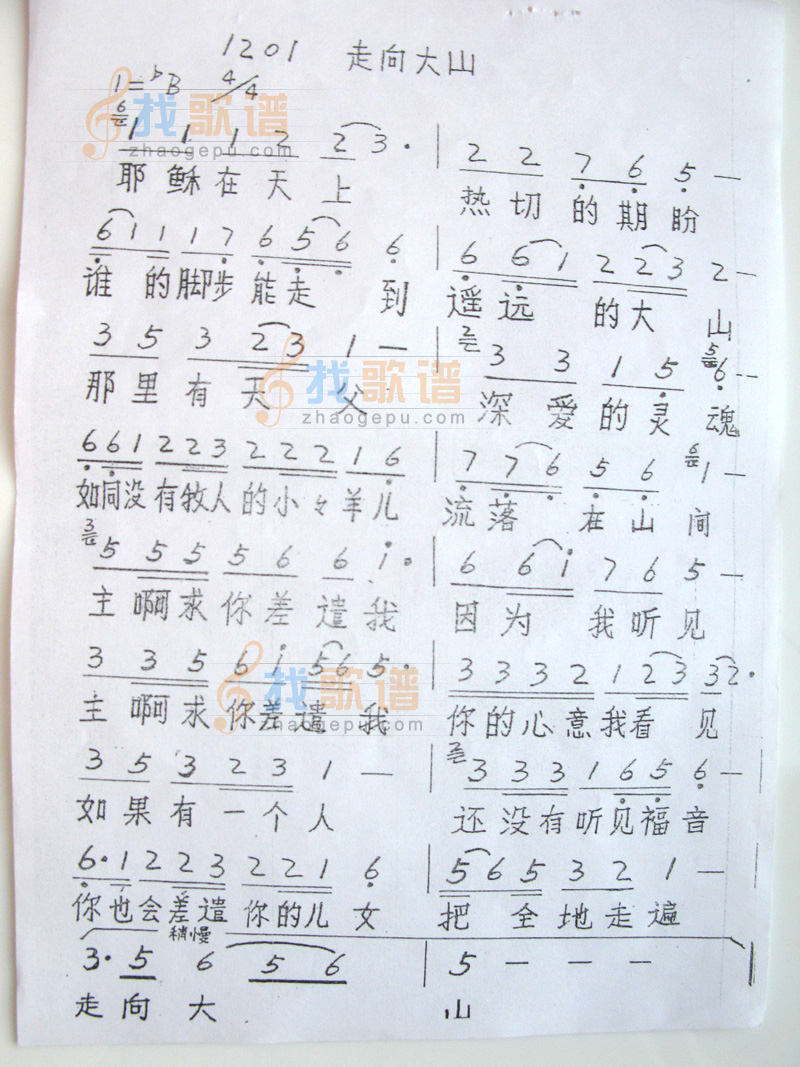 1201 走向大山
1=♭B 4/4
6
1 1 1 2 2 3· | 2 2 7 6 5 —
耶稣在天上 热切的期盼
6 1 1 1 7 6 5 6 6 | 6 6 1 2 2 3 2 —
谁的脚步能走到 遥远的大山
3 5 3 2 3 1 — | 2 3 3 1 5 5 6 —
那里有天父 深爱的灵魂
6 6 1 2 2 3 2 2 2 1 6 | 7 7 6 5 6 6 1 —
如同没有牧人的小々羊儿 流落在山间
3 5 5 5 5 6 6 i· | 6 6 i 7 6 5 —
主啊求你差遣我 因为我听见
3 3 5 6 i 5 6 5· | 3 3 3 2 1 2 3 3 2·
主啊求你差遣我 你的心意我看见
3 5 3 2 3 1 — | 2 3 3 3 1 6 5 6 —
如果有一个人 还没有听见福音
6· 1 2 2 3 2 2 1 6 | 5 6 5 3 2 1 —
你也会差遣你的儿女 把全地走遍
稍慢
3· 5 6 5 6 | 5 — — —
走向大 山
找歌谱
zhaogepu.com
找歌谱
zhaogepu.com
找歌谱
zhaogepu.com